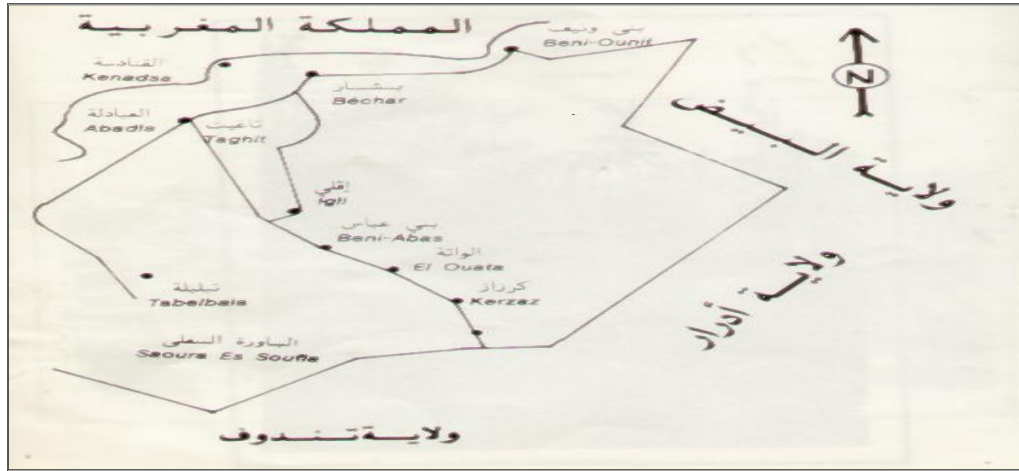 المملكة المغربية
بني ونيف
Beni-Ounit
القنادسة
Kenadsa
بشار
Béchar
العبادلة
Abadla
تاغيت
Taghit
N
ولاية البيض
إقلي
Igli
بني عباس
Beni-Abas
الواتة
El Ouata
كرزاز
Kerzaz
تبلبلة
Tabelbala
ولاية أدرار
الساورة السفلى
Saoura Es Soufla
ولاية تندوف